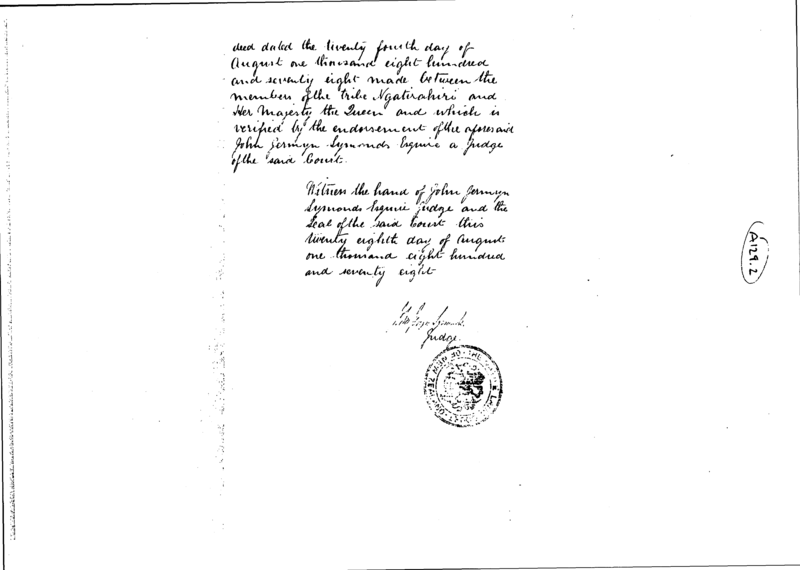 deed dated the twenty fourth day of
August one thousand eight hundred
and seventy eight made between the
members of the tribe Ngatirahiri and
Her Majesty the Queen and which is
verified by the endorsement of the aforesaid
John Jermyn Symonds Esquire a Judge
of the said Court.
Witness the hand of John Jermyn
Symonds Esquire Judge and the
Seal of the said Court this
twenty eighth day of August
one thousand eight hundred
and seventy eight
Judge.
OF NEW ZEA
A129.2